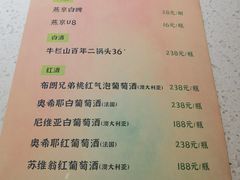 燕京白啤 18元/瓶
燕京U8 16元/瓶
白酒
牛栏山百年二锅头36° 238元/瓶
红酒
布朗兄弟桃红气泡葡萄酒(澳大利亚) 238元/瓶
奥希耶白葡萄酒(法国) 238元/瓶
尼维亚白葡萄酒(澳大利亚) 188元/瓶
奥希耶红葡萄酒(法国) 238元/瓶
苏维翁红葡萄酒(澳大利亚) 188元/瓶